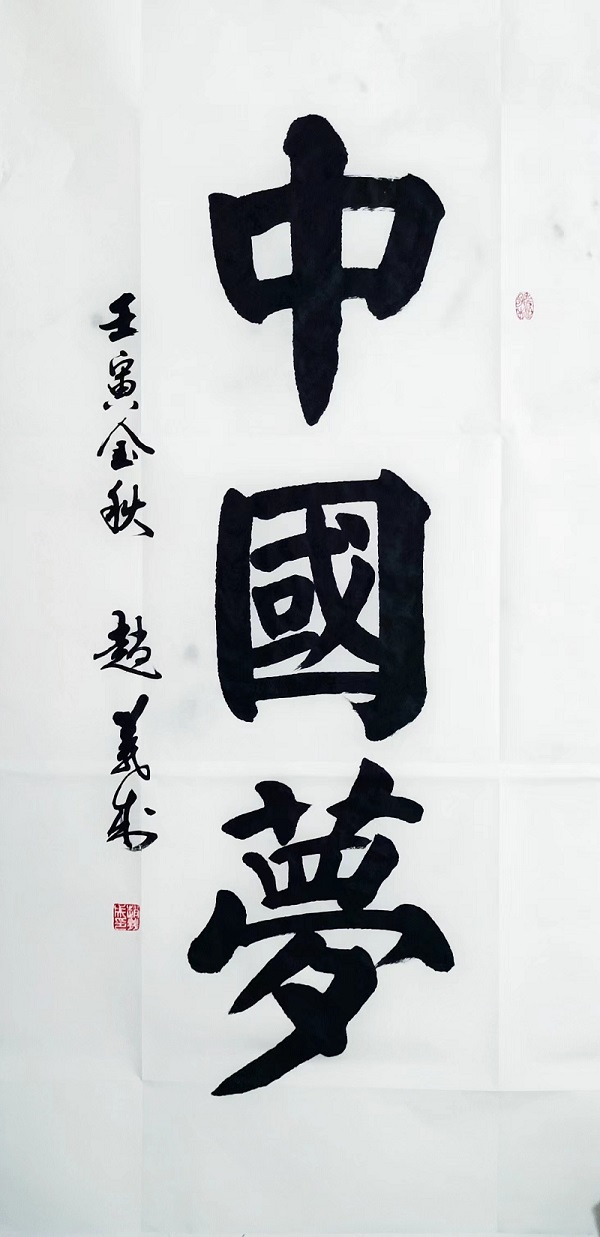 中國夢
壬寅金秋 趙義成